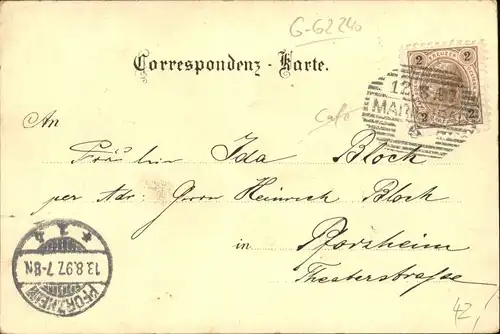 G-62240
Correspondenz - Karte.
2 2
12 8 97
MARIENBAD
Café
An
Fräulein Ida Bloch
per Adr: Herrn Heinrich Bloch
in Pforzheim
Theaterstrasse
PFORZHEIM
13.8.97. 7-8N.
42,